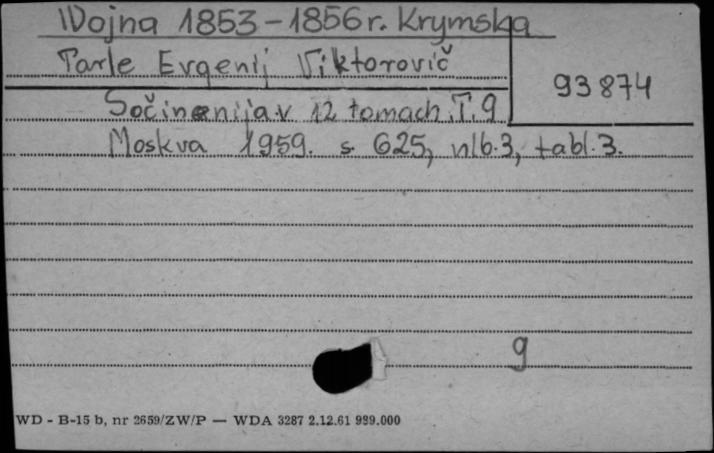 Wojna 1853-1856 r. Krymska
Tarle Evgenij Viktorovič
93 874
Sočinenija v 12 tomach. T. 9
Moskva 1959. s. 625, nlb. 3, tabl. 3.
9
WD - B-15 b, nr 2659/ZW/P — WDA 3287 2.12.61 999.000